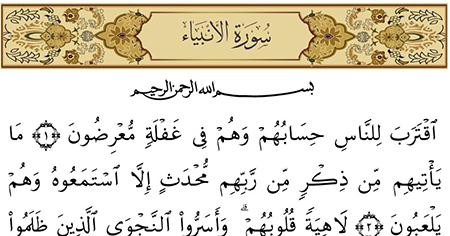 سُورَةُ الأَنْبِيَاء
بِسْمِ اللهِ الرَّحْمٰنِ الرَّحِيمِ
ٱقْتَرَبَ لِلنَّاسِ حِسَابُهُمْ وَهُمْ فِى غَفْلَةٍ مُّعْرِضُونَ ﴿١﴾ مَا
يَأْتِيهِم مِّن ذِكْرٍ مِّن رَّبِّهِم مُّحْدَثٍ إِلَّا ٱسْتَمَعُوهُ وَهُمْ
يَلْعَبُونَ ﴿٢﴾ لَاهِيَةً قُلُوبُهُمْ ۗ وَأَسَرُّوا۟ ٱلنَّجْوَى ٱلَّذِينَ ظَلَمُوا۟